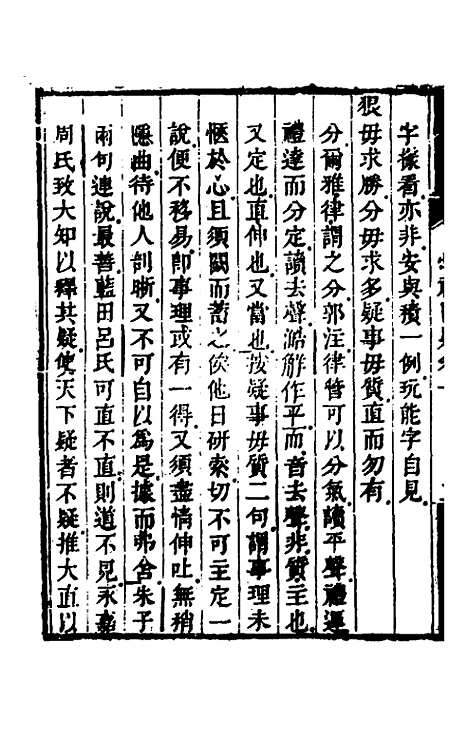 字樣看亦非安與積一例玩能字自見
狠毋求勝分毋求多疑事毋質直而勿有
分爾雅律謂之分郭注律管可以分氣讀平聲禮運
禮達而分定讀去聲澔解作平而音去聲非質主也
又定也直伸也又當也按疑事毋質二句謂事理未
愜於心且須闕而蓄之俟他日研索切不可主定一
說便不移易卽事理或有一得又須盡情伸吐無稍
隱曲待他人剖晰又不可自以爲是據而弗舍朱子
兩句連說最善藍田呂氏可直不直則道不見永嘉
周氏致大知以釋其疑使天下疑者不疑推大直以